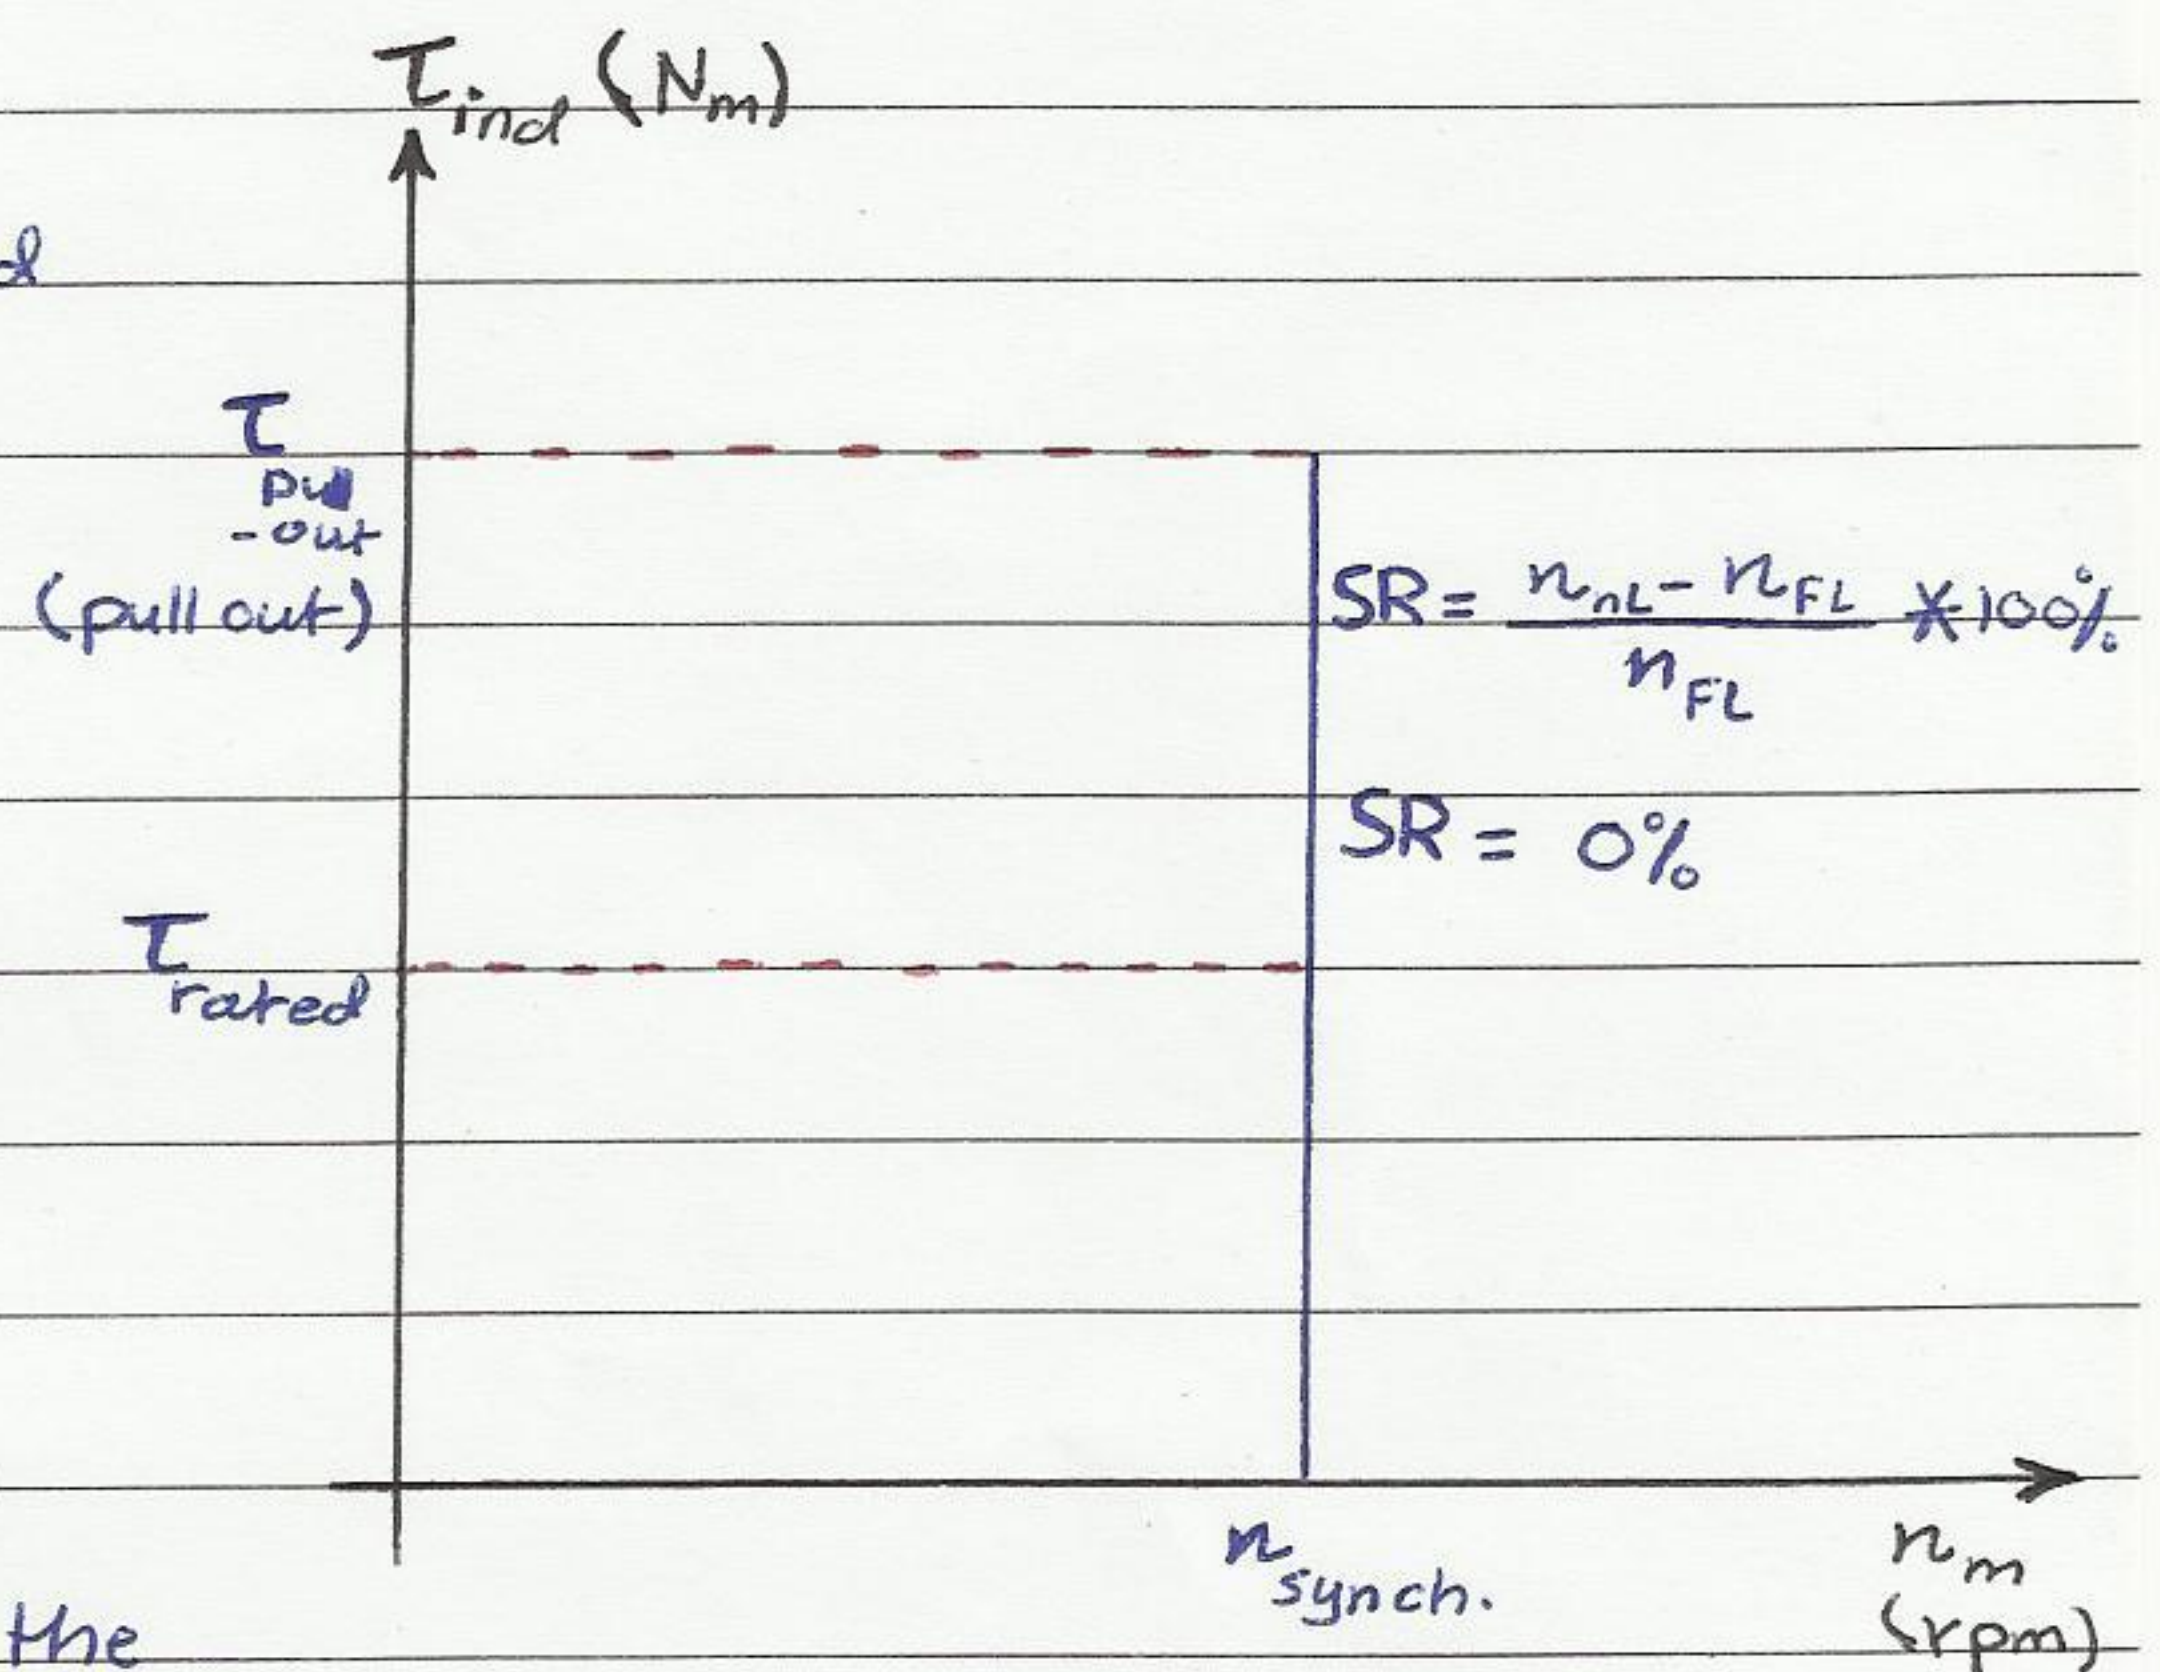 τind (Nm)
d
τ
pull
-out
(pull out)
SR = (nnL - nFL) / nFL * 100%
SR = 0%
τrated
nsynch.
nm
(rpm)
the